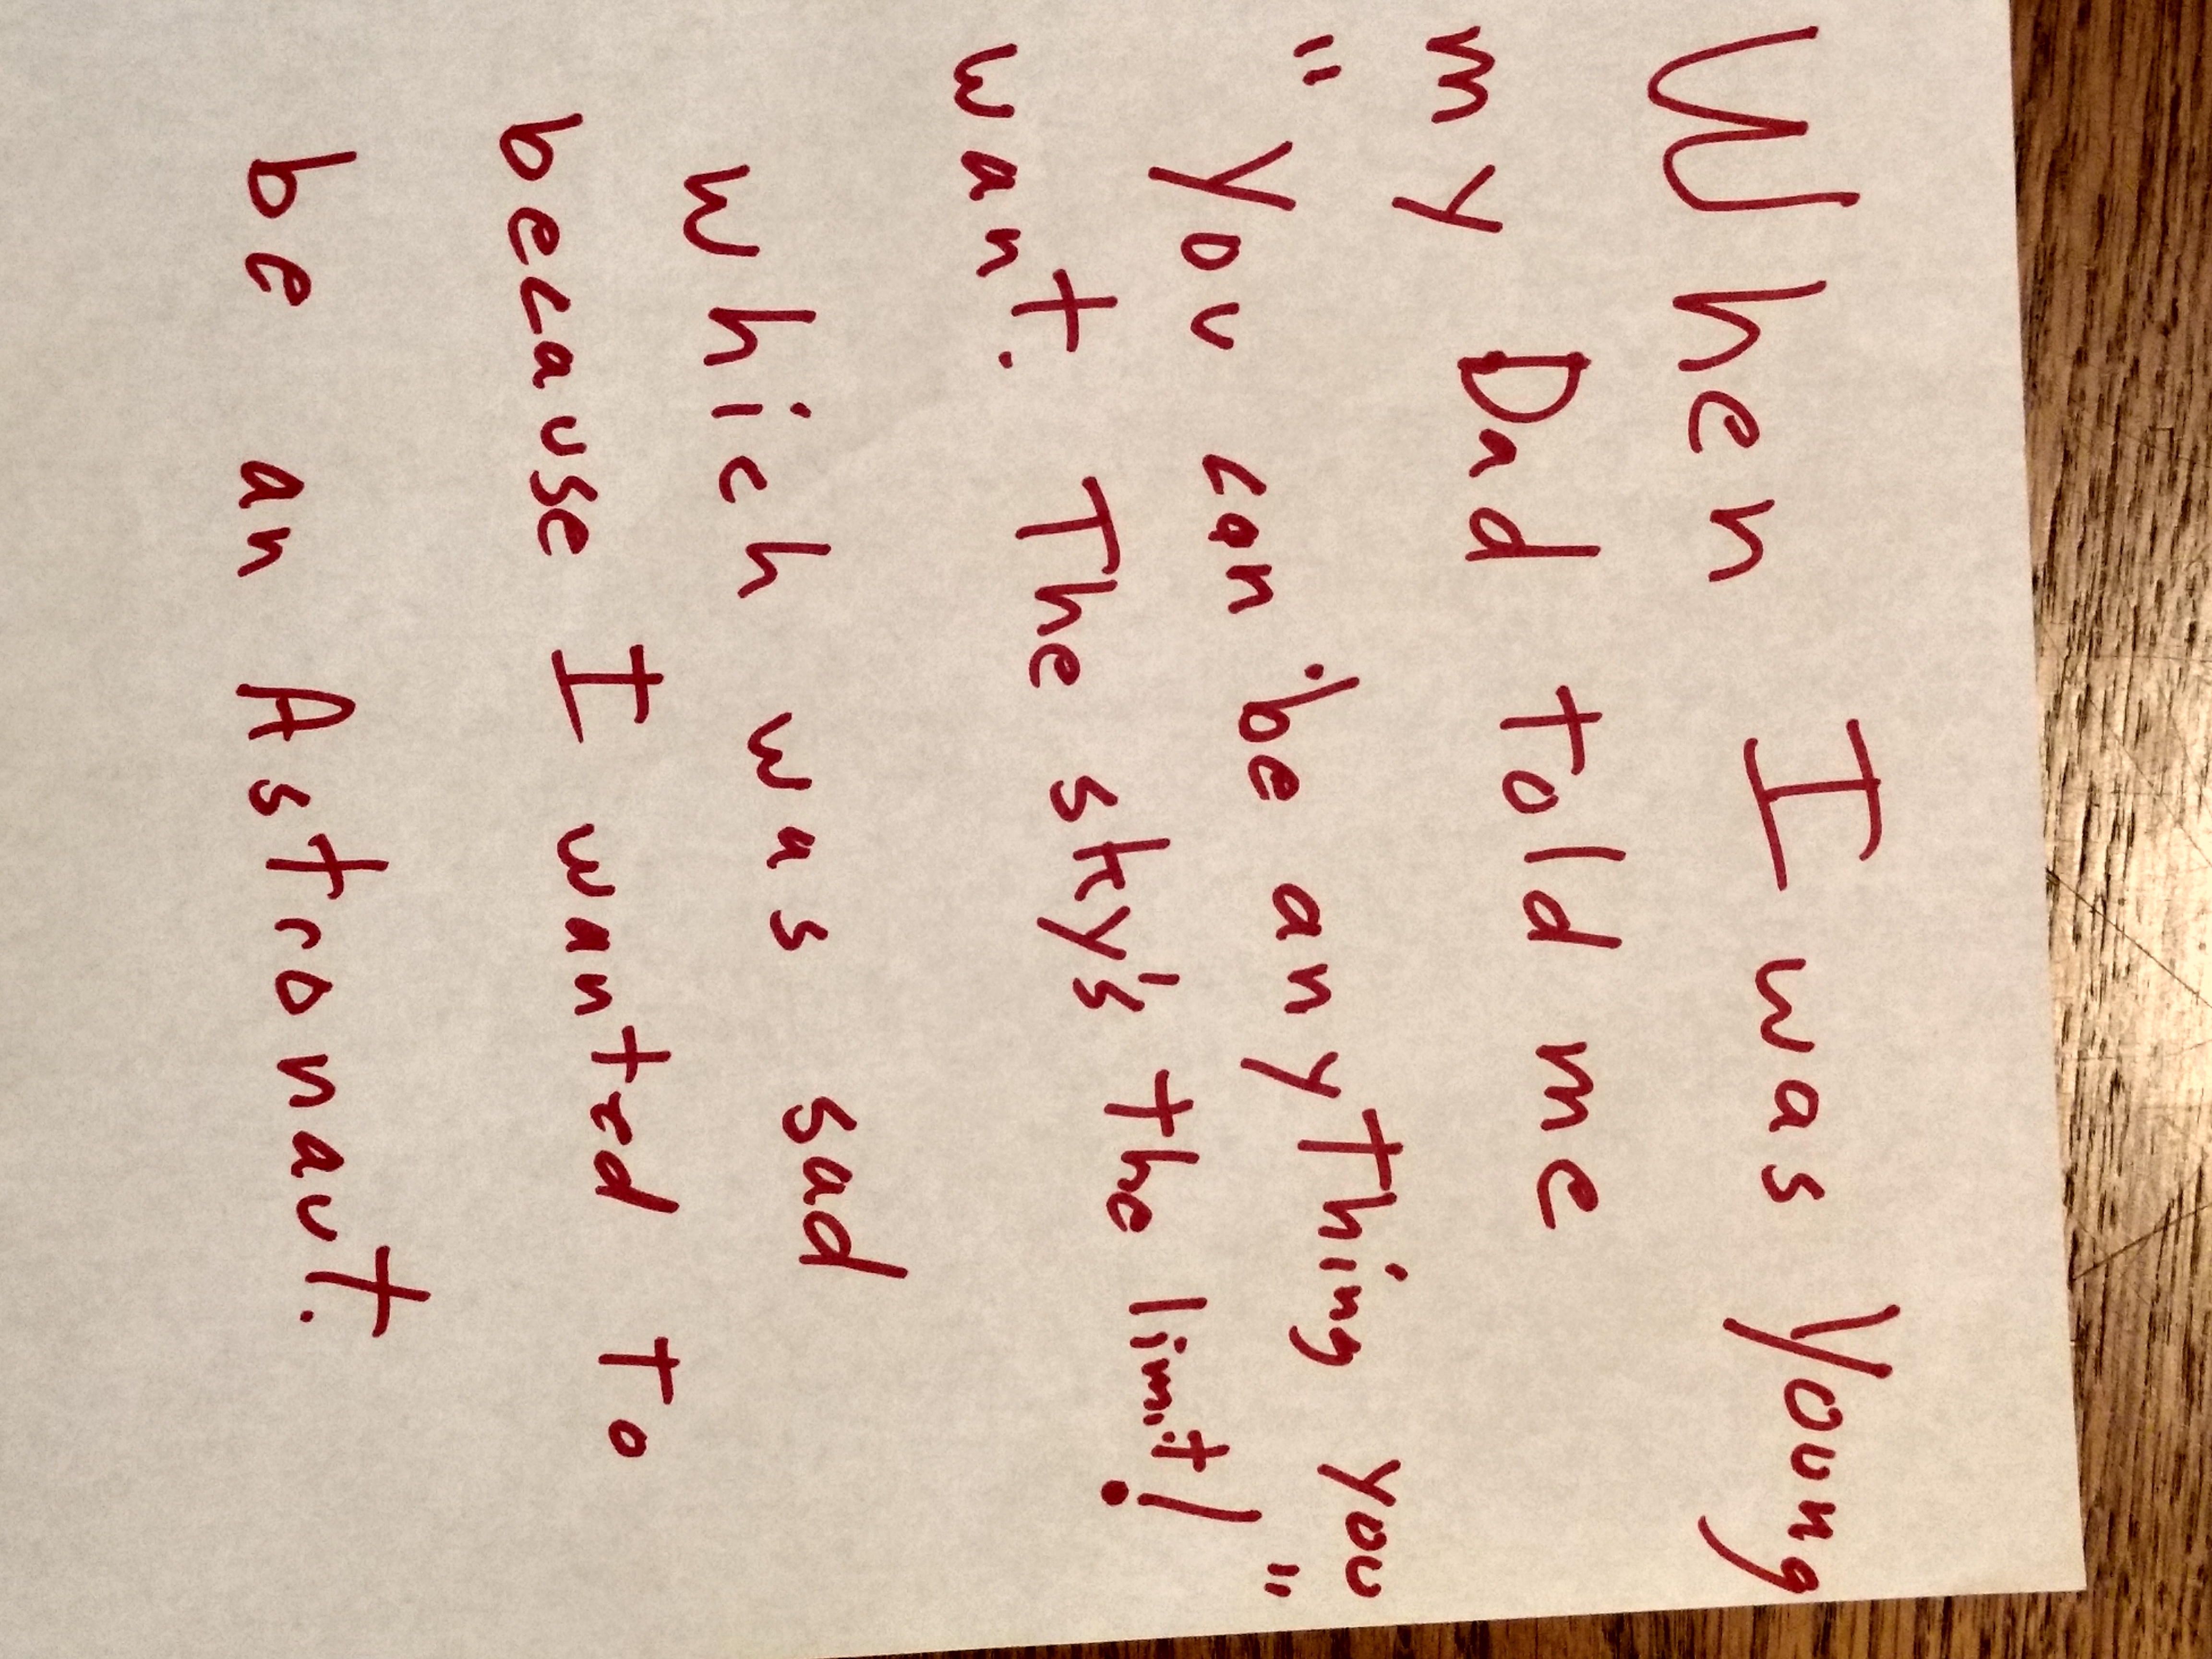 When I was Young
my Dad told me
"You can be anything you
want. The sky's the limit!"
which was sad
because I wanted to
be an Astronaut.